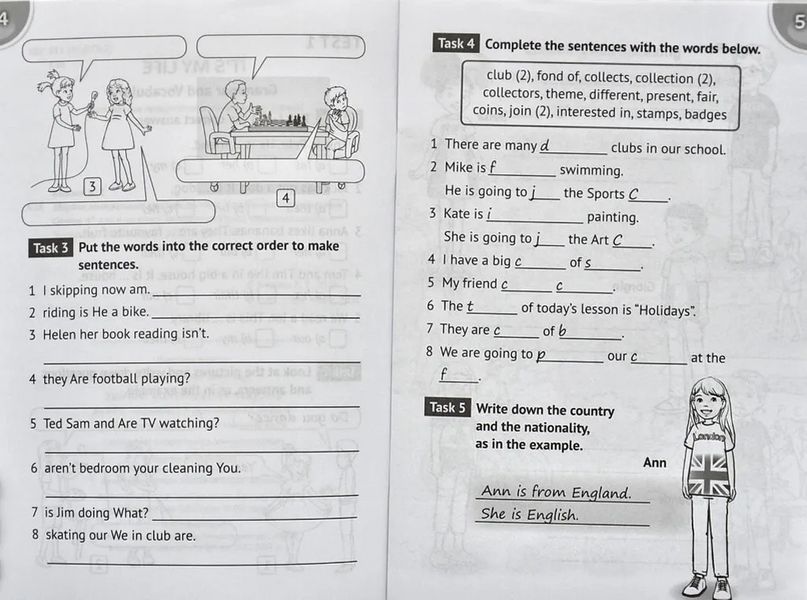 4
3
4
Task 3 Put the words into the correct order to make
sentences.
1 I skipping now am.
2 riding is He a bike.
3 Helen her book reading isn't.
4 they Are football playing?
5 Ted Sam and Are TV watching?
6 aren't bedroom your cleaning You.
7 is Jim doing What?
8 skating our We in club are.
5
Task 4 Complete the sentences with the words below.
club (2), fond of, collects, collection (2),
collectors, theme, different, present, fair,
coins, join (2), interested in, stamps, badges
1 There are many d________ clubs in our school.
2 Mike is f________ swimming.
He is going to j____ the Sports C____.
3 Kate is i________ painting.
She is going to j____ the Art C____.
4 I have a big c______ of s______.
5 My friend c______ c______.
6 The t______ of today's lesson is "Holidays".
7 They are c______ of b______.
8 We are going to p______ our c______ at the
f____.
Task 5 Write down the country
and the nationality,
as in the example.
Ann
Ann is from England.
She is English.
London